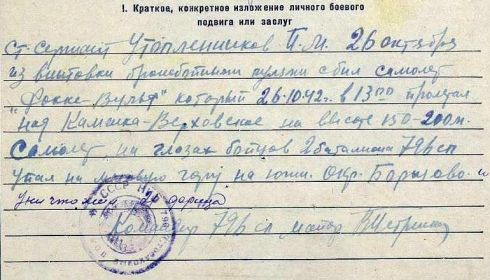 I. Краткое, конкретное изложение личного боевого
подвига или заслуг
Ст. сержант Утопленников П.М. 26 октября
из винтовки бронебойными пулями сбил самолет
"Фокке-Вульф" который 26.10.42 г. в 13 00 пролетал
над Каменка-Верховское на высоте 150-200 м.
Самолет на глазах бойцов 2 батальона 796 сп
упал на на южн. окр. Борисово. и
СССР
Командир 796 сп майор